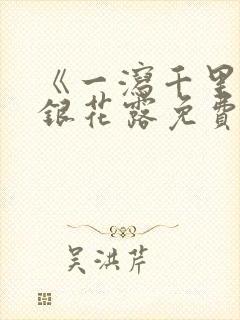 《一瀉千里
銀花露免費
吴洪芹